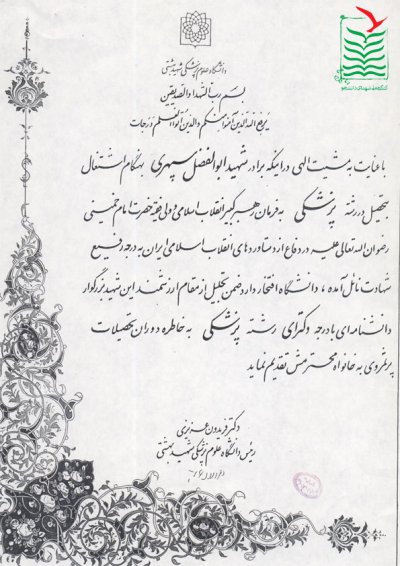 دانشگاه علوم پزشکی شهید بهشتی
کنگره ملی شهدای دانشجو
بسم رب الشهداء والصدیقین
یرفع الله الذین آمنوا منکم والذین اوتوا العلم درجات
با عنایت به مشیت الهی در اینکه برادر شهید ابوالفضل سپهری بهنگام اشتغال
بتحصیل در رشته پزشکی به فرمان رهبر کبیر انقلاب اسلامی و ولی فقیه حضرت امام خمینی
رضوان الله تعالی علیه در دفاع از دستاوردهای انقلاب اسلامی ایران به درجه رفیع
شهادت نائل آمده، دانشگاه افتخار دارد ضمن تجلیل از مقام ارزشمند این شهید بزرگوار
دانشنامه ای با درجه دکترای رشته پزشکی به خاطره دوران تحصیلات
پرثمر وی به خانواه محترمش تقدیم نماید
دکتر فریدون عزیزی
رئیس دانشگاه علوم پزشکی شهید بهشتی